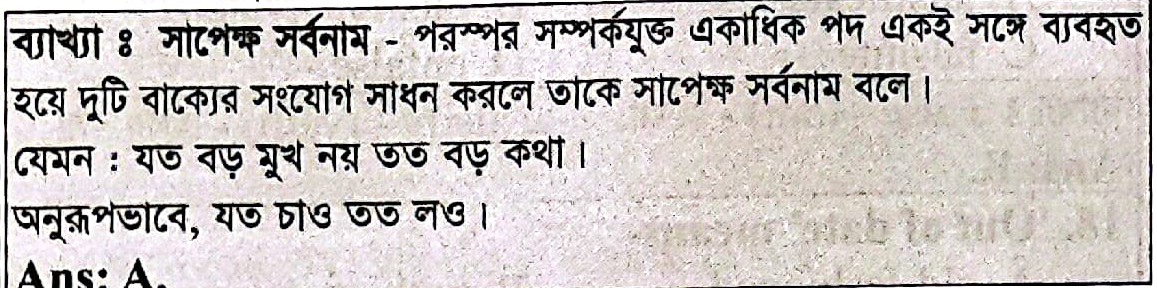 ব্যাখ্যা ঃ সাপেক্ষ সর্বনাম - পরস্পর সম্পর্কযুক্ত একাধিক পদ একই সঙ্গে ব্যবহৃত
হয়ে দুটি বাক্যের সংযোগ সাধন করলে তাকে সাপেক্ষ সর্বনাম বলে।
যেমন : যত বড় মুখ নয় তত বড় কথা।
অনুরূপভাবে, যত চাও তত লও।
Ans: A.